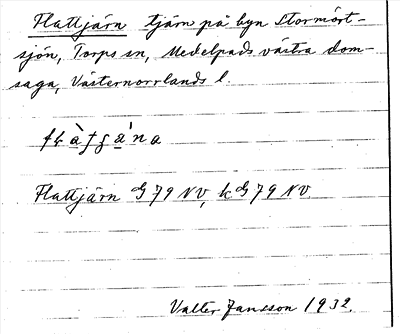 Flattjärn tjärn på byn Stormört-
sjön, Torps sn, Medelpads västra dom-
saga, Västernorrlands l.
Flattjärn G 79 NV, k G 79 NV.
Valter Jansson 1932.